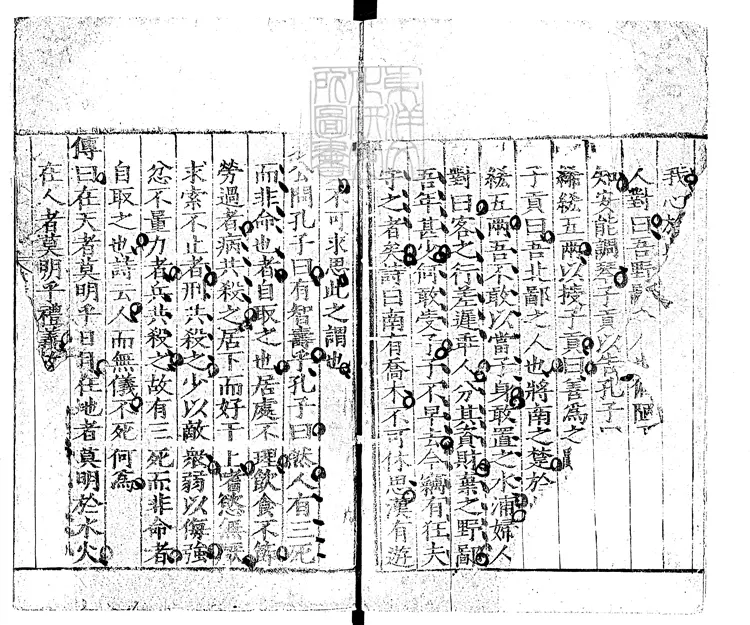 我心於
人對曰吾野
知安能調琴子貢以告孔子
絺綌五兩以授子貢曰善為之
子貢曰吾北鄙之人也將南之楚於
綌五兩吾不敢以當子身敢置之水浦婦人
對曰客之行差遲乖人分其資財棄之野鄙
吾年甚少何敢受子子不早去今竊有狂夫
守之者矣詩曰南有喬木不可休思漢有遊
不可求思此之謂也
公問孔子曰有智壽乎孔子曰然人有三死
而非命也者自取之也居處不理飲食不節
勞過者病共殺之居下而好干上嗜慾無厭
求索不止者刑共殺之少以敵衆弱以侮強
忿不量力者兵共殺之故有三死而非命者
自取之也詩云人而無儀不死何爲
傳曰在天者莫明乎日月在地者莫明於水火
在人者莫明乎禮義故
東洋文化研究所圖書